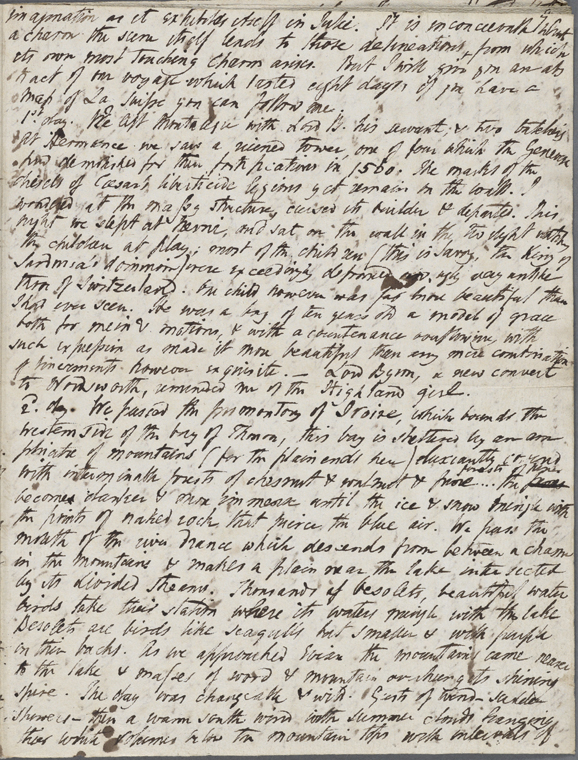 imagination as it exhibits itself in Julie. It is inconceivable what
a charm the scene itself lends to those delineations, from which
its own most touching charm arises. But I will give you an abs
tract of our voyage which lasted eight days & if you have a
map of La Suisse you can follow me.
1st day. We left Montalegre with Lord B. his servant, & two
At Hermance we saw a ruined tower, one of four which the Genevese
had demolished for their fortifications in 1560. The marks of the
chisels of Caesar's liberticide legions yet remain on the wall. I
wondered at the massy structure, cursed its builder & departed. This
night we slept at Nerni, and sat on the wall in the twilight
the children at play; most of the children (this is Savoy, the King of
Sardinia's dominion) were exceedingly deformed & ugly unlike
those of Switzerland. One child however was far more beautiful than
I had ever seen. He was a boy of ten years old a model of grace
both for mein & motions, & with a countenance overflowing with
such expression as made it more beautiful than any mere combination
of lineaments however exquisite — Lord Byron, a new convert
to Wordsworth, reminded me of the Highland girl.
2. day. We passed the promontory of Ivoire, which bounds the
western side of the bay of Thonon, this bay is sheltered by an am
phitheatre of mountains (for the plain ends here)
with interminable forests of chesnut & walnut & pine... the
becomes darker & more immense until the ice & snow mingle with
the points of naked rock that pierce the blue air. We pass the
mouth of the river Drance which descends from between a chasm
in the mountains & makes a plain near the lake intersected
by its divided streams. Thousands of besolets, beautiful water
birds take their station where its waters mingle with the lake
Besolets are birds like seagulls but smaller & with purple
on their backs. As we approached Evian the mountains came nearer
to the lake & masses of wood & mountain overhung its shining
spire. The day was changeable & wild. Gusts of wind sudden
showers — then a warm south wind with summer clouds hanging
their white volumes below the mountain tops with intervals of